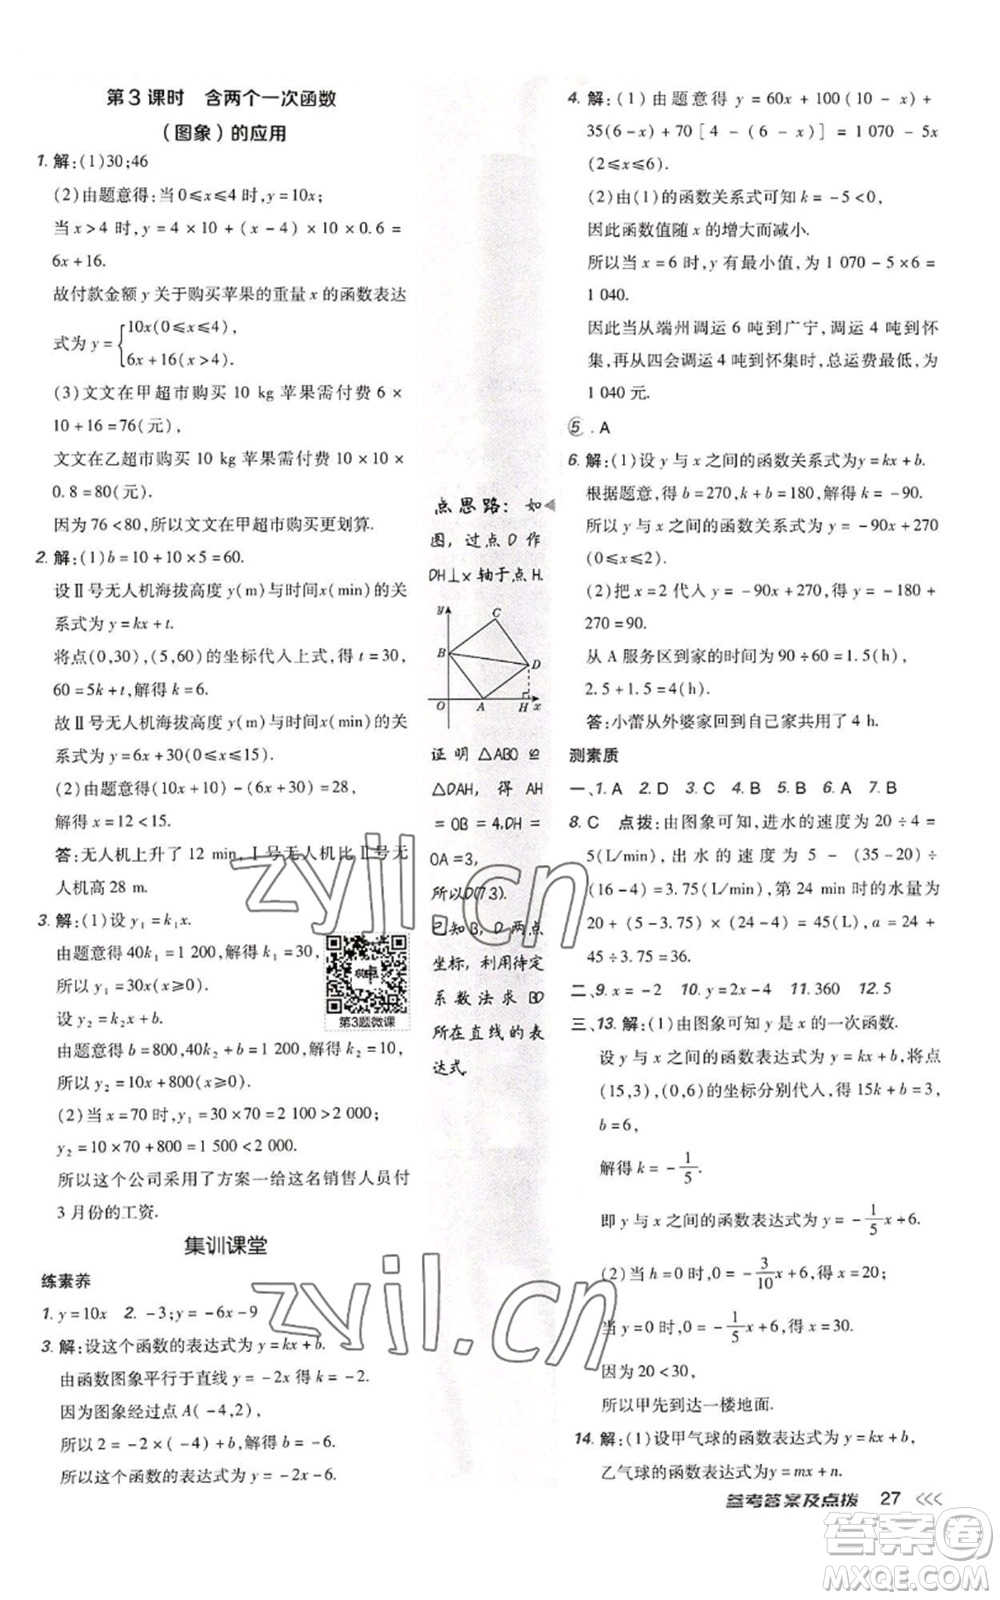 第3课时　含两个一次函数
（图象）的应用
1. 解:(1)30;46
(2)由题意得:当0≤x≤4时,y=10x;
当x>4时,y=4×10+(x-4)×10×0.6=
6x+16.
故付款金额y关于购买苹果的重量x的函数表达
式为y={10x(0≤x≤4),
6x+16(x>4).
(3)文文在甲超市购买10 kg苹果需付费6×
10+16=76(元),
文文在乙超市购买10 kg苹果需付费10×10
×0.8=80(元).
因为76<80,所以文文在甲超市购买更划算.
2. 解:(1)b=10+10×5=60.
设Ⅱ号无人机海拔高度y(m)与时间x(min)的关
系式为y=kx+t.
将点(0,30),(5,60)的坐标代入上式,得t=30,
60=5k+t,解得k=6.
故Ⅱ号无人机海拔高度y(m)与时间x(min)的关
系式为y=6x+30(0≤x≤15).
(2)由题意得(10x+10)-(6x+30)=28,
解得x=12<15.
答:无人机上升了12 min,Ⅰ号无人机比Ⅱ号无
人机高28 m.
3. 解:(1)设y₁=k₁x.
由题意得40k₁=1 200,解得k₁=30,
所以y₁=30x(x≥0).
设y₂=k₂x+b.
由题意得b=800,40k₂+b=1 200,解得k₂=10,
所以y₂=10x+800(x≥0).
(2)当x=70时,y₁=30×70=2 100>2 000;
y₂=10×70+800=1 500<2 000.
所以这个公司采用了方案一给这名销售人员付
3月份的工资.
第3题微课
集训课堂
练素养
1. y=10x　2. -3;y=-6x-9
3. 解:设这个函数的表达式为y=kx+b.
由函数图象平行于直线y=-2x,得k=-2.
因为图象经过点A(-4,2),
所以2=-2×(-4)+b,解得b=-6.
所以这个函数的表达式为y=-2x-6.
点思路：如
图，过点D作
DH⊥x轴于点H.
y
C
B
D
O A H x
证明△ABO≌
△DAH，得AH
=OB=4,DH=
OA=3,
所以D(7,3).
已知B,D两点
坐标，利用待定
系数法求BD
所在直线的表
达式.
4. 解:(1)由题意得y=60x+100(10-x)+
35(6-x)+70[4-(6-x)]=1 070-5x
(2≤x≤6).
(2)由(1)的函数关系式可知k=-5<0,
因此函数值随x的增大而减小.
所以当x=6时,y有最小值,为1 070-5×6=
1 040.
因此当从端州调运6吨到广宁,调运4吨到怀
集,再从四会调运4吨到怀集时,总运费最低,为
1 040元.
5. A
6. 解:(1)设y与x之间的函数关系式为y=kx+b.
根据题意,得b=270,k+b=180,解得k=-90.
所以y与x之间的函数关系式为y=-90x+270
(0≤x≤2).
(2)把x=2代入y=-90x+270,得y=-180+
270=90.
从A服务区到家的时间为90÷60=1.5(h),
2.5+1.5=4(h).
答:小蕾从外婆家回到自己家共用了4 h.
测素质
一、1. A　2. D　3. C　4. B　5. B　6. A　7. B
8. C　点拨:由图象可知,进水的速度为20÷4=
5(L/min),出水的速度为5-(35-20)÷
(16-4)=3.75(L/min),第24 min时的水量为
20+(5-3.75)×(24-4)=45(L),a=24+
45÷3.75=36.
二、9. x=-2　10. y=2x-4　11. 360　12. 5
三、13. 解:(1)由图象可知y是x的一次函数.
设y与x之间的函数表达式为y=kx+b,将点
(15,3),(0,6)的坐标分别代入,得15k+b=3,
b=6,
解得k=-1/5.
即y与x之间的函数表达式为y=-1/5x+6.
(2)当h=0时,0=-3/10x+6,解得x=20;
当y=0时,0=-1/5x+6,解得x=30.
因为20<30,
所以甲先到达一楼地面.
14. 解:(1)设甲气球的函数表达式为y=kx+b,
乙气球的函数表达式为y=mx+n.
参考答案及点拨　27
zyjl.cn
zyjl.cn
答案卷
MXQE.COM